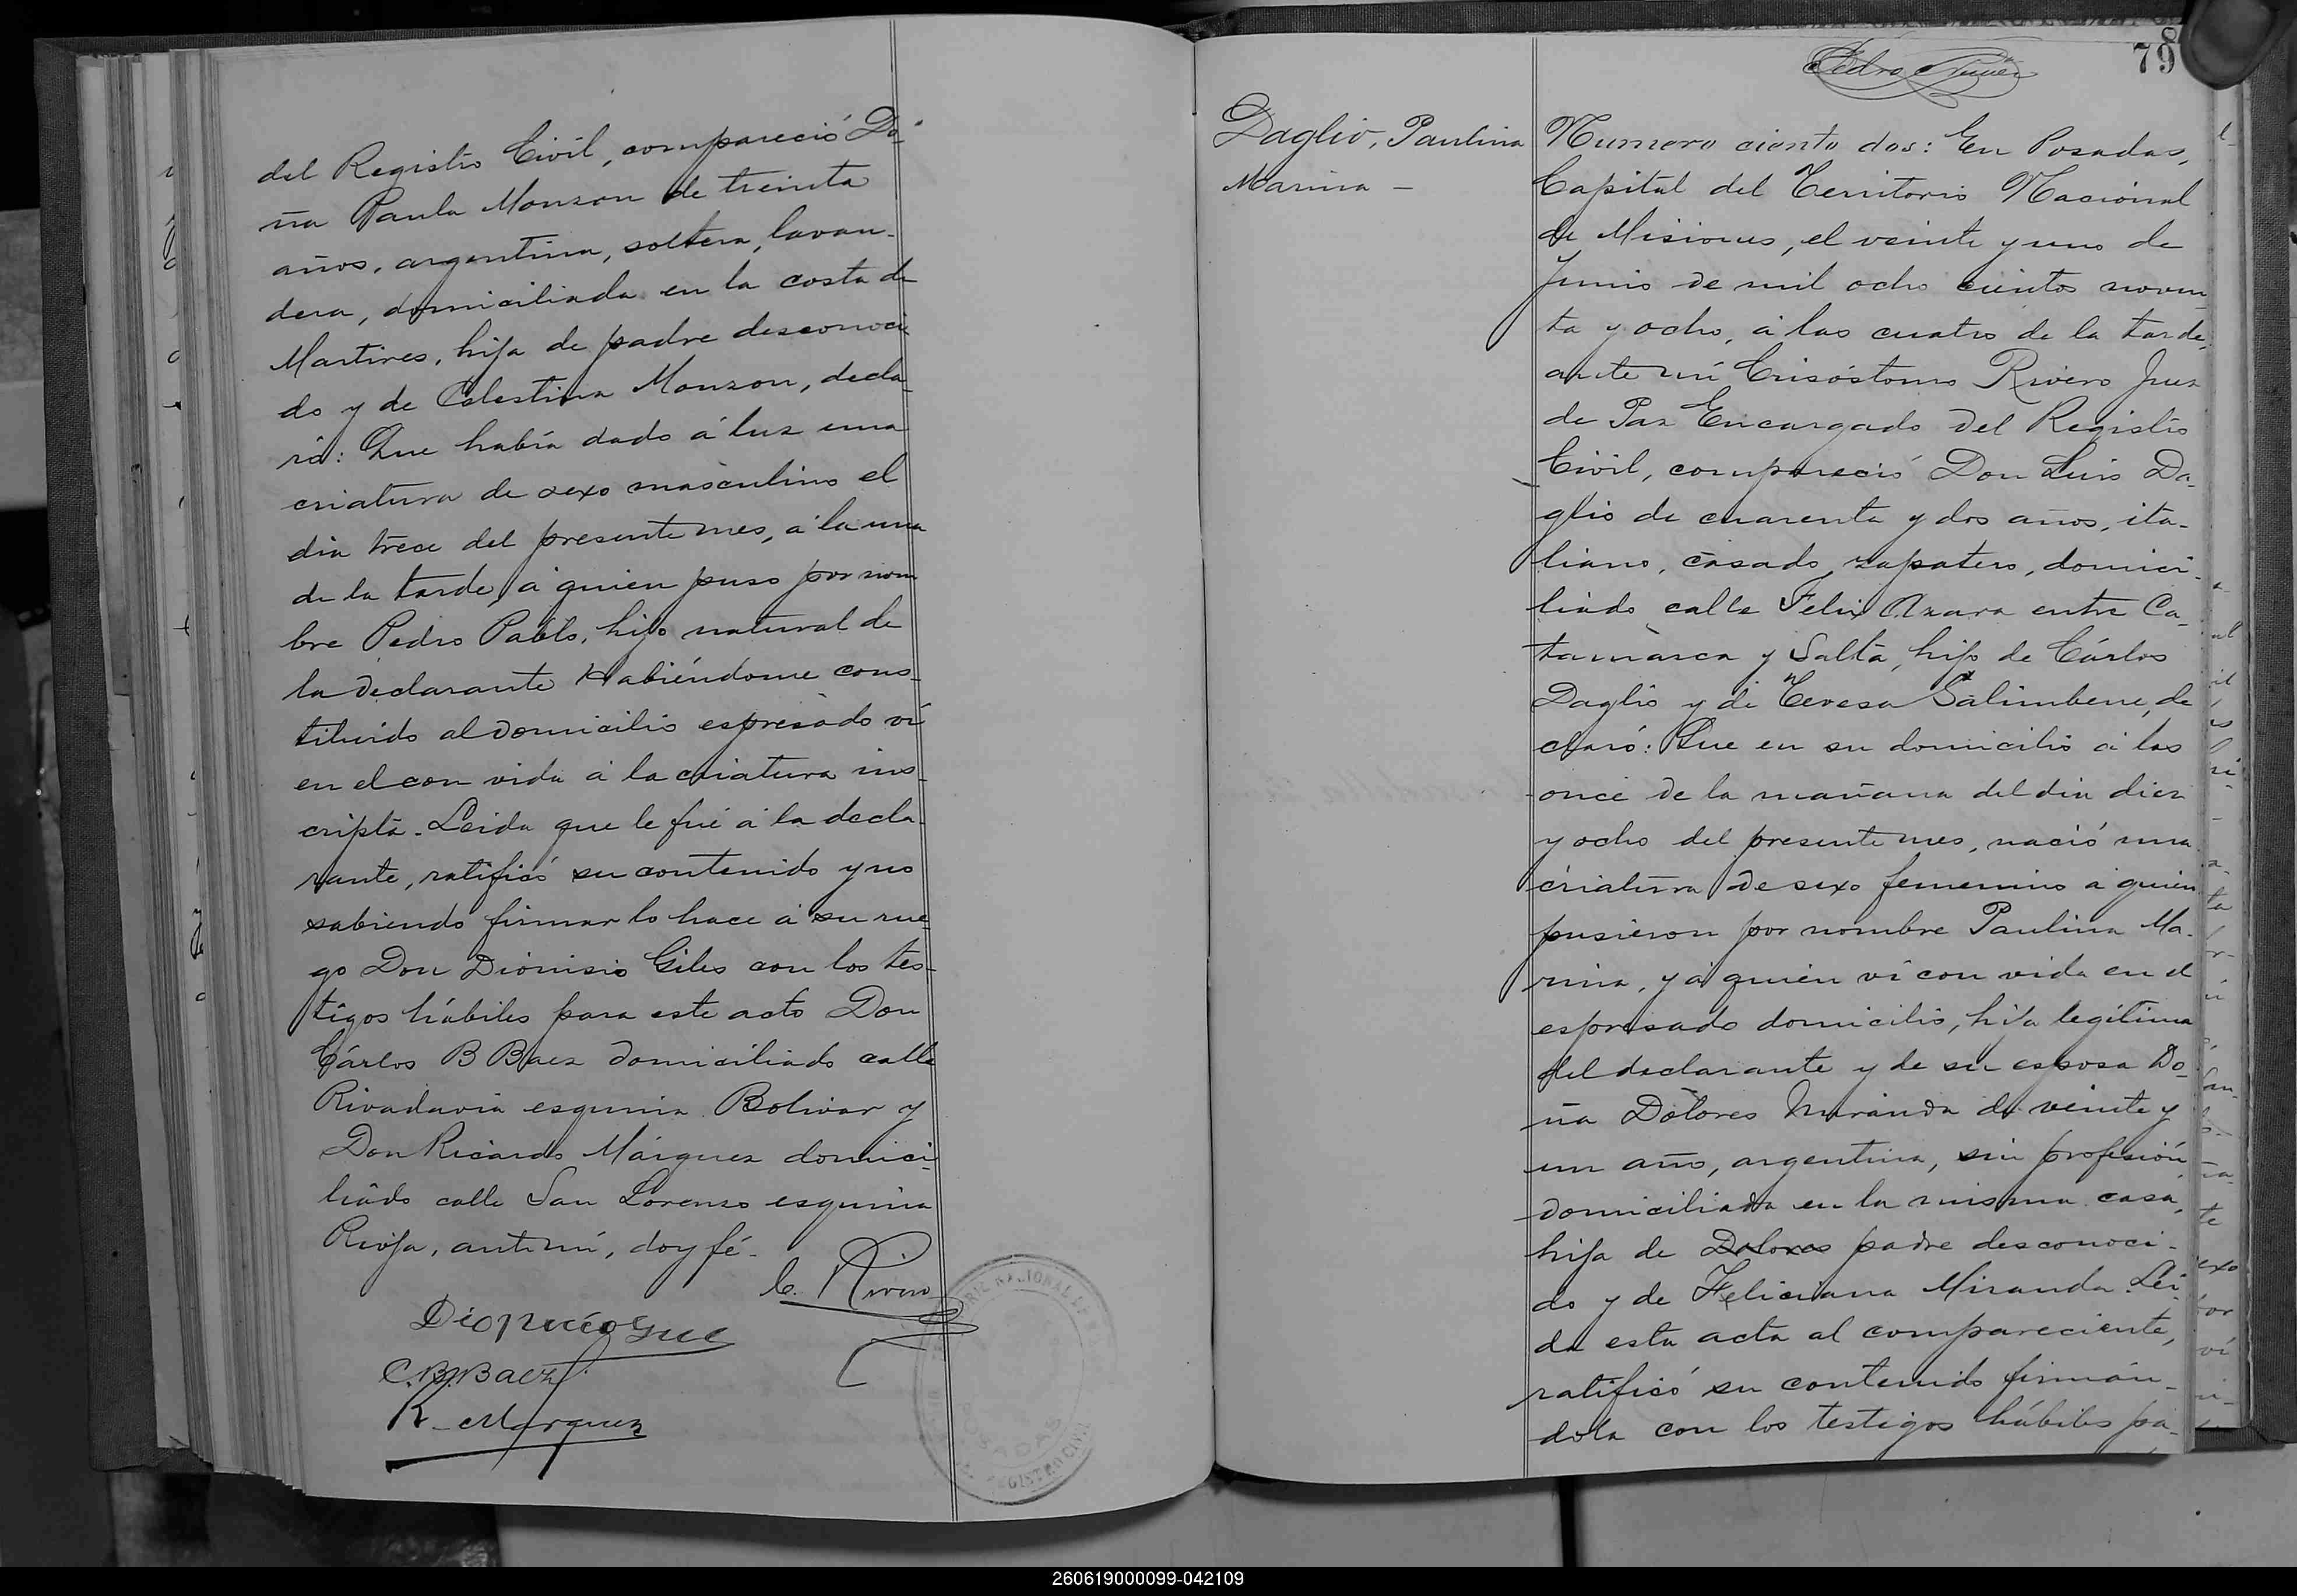 del Registro Civil, compareció Do-
ña Paula Monzon de treinta
años, argentina, soltera, lavan-
dera, domiciliada en la costa de
Martires, hija de padre desconoci-
do y de Celestina Monzon, decla-
ró: Que había dado á luz una
criatura de sexo masculino el
dia trece del presente mes, á la una
de la tarde, á quien puso por nom
bre Pedro Pablo, hijo natural de
la declarante Habiéndome cons-
tituido al domicilio espresado ví
en el con vida á la criatura ins-
cripta. Leida que le fué á la decla-
rante, ratificó su contenido y no
sabiendo firmar lo hace á su rue-
go Don Dionisio Giles con los tes-
tigos hábiles para este acto Don
Cárlos B Baez domiciliado calle
Rivadavia esquina Bolivar y
Don Ricardo Márquez domici-
liado calle San Lorenzo esquina
Rioja, ante mí, doy fé.
C. Rivero
C. B. Baez
R. Marquez
79
Daglio, Paulina
Marina —
Numero ciento dos: En Posadas,
Capital del Territorio Nacional
de Misiones, el veinte y uno de
Junio de mil ocho cientos noven
ta y ocho, á las cuatro de la tarde,
ante mí Crisóstomo Rivero Juez
de Paz Encargado del Registro
Civil, compareció Don Luis Da-
glio de cuarenta y dos años, ita-
liano, casado, zapatero, domici-
liado calle Felix Azara entre Ca-
tamarca y Salta, hijo de Cárlos
Daglio y de Teresa Salimbene, de
claró: Que en su domicilio á las
once de la mañana del dia diez
y ocho del presente mes, nació una
criatura de sexo femenino á quien
pusieron por nombre Paulina Ma-
rina, y á quien ví con vida en el
espresado domicilio, hija legítima
del declarante y de su esposa Do-
ña Dolores Miranda de veinte y
un año, argentina, sin profesión
domiciliada en la misma casa,
hija de Dolores padre desconoci-
do y de Feliciana Miranda. Lei-
da esta acta al compareciente,
ratificó su contenido firmán-
dola con los testigos hábiles pa-
260619000099-042109